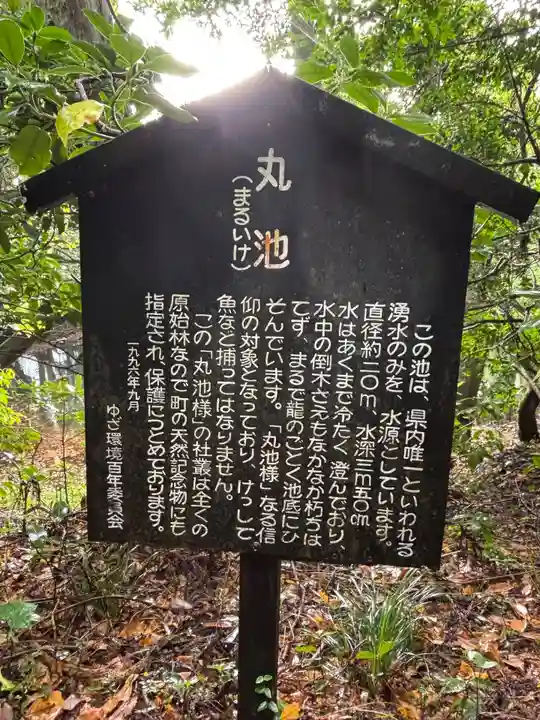 丸池
（まるいけ）
この池は、県内唯一といわれる
湧水のみを、水源としています。
直径約二〇m、水深三m五〇cm
水はあくまで冷たく、澄んでおり、
水中の倒木さえもなかなか朽ちは
てず、まるで龍のごとく池底にひ
そんでいます。「丸池様」なる信
仰の対象となっており、けっして
魚など捕ってはなりません。
この「丸池様」の社叢は全くの
原始林なので町の天然記念物にも
指定され、保護につとめております。
一九九六年九月
ゆざ環境百年委員会